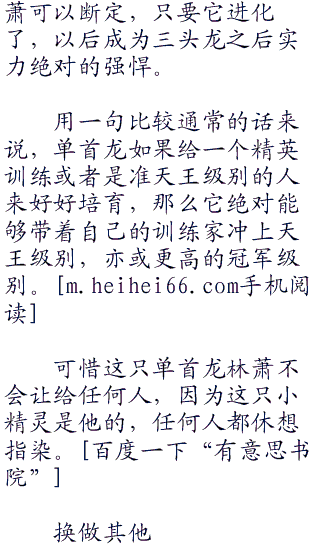 萧可以断定，只要它进化
了，以后成为三头龙之后实
力绝对的强悍。
用一句比较通常的话来
说，单首龙如果给一个精英
训练或者是准天王级别的人
来好好培育，那么它绝对能
够带着自己的训练家冲上天
王级别，亦或更高的冠军级
别。[m.heihei66.com手机阅
读]
可惜这只单首龙林萧不
会让给任何人，因为这只小
精灵是他的，任何人都休想
指染。[百度一下“有意思书
院”]
换做其他